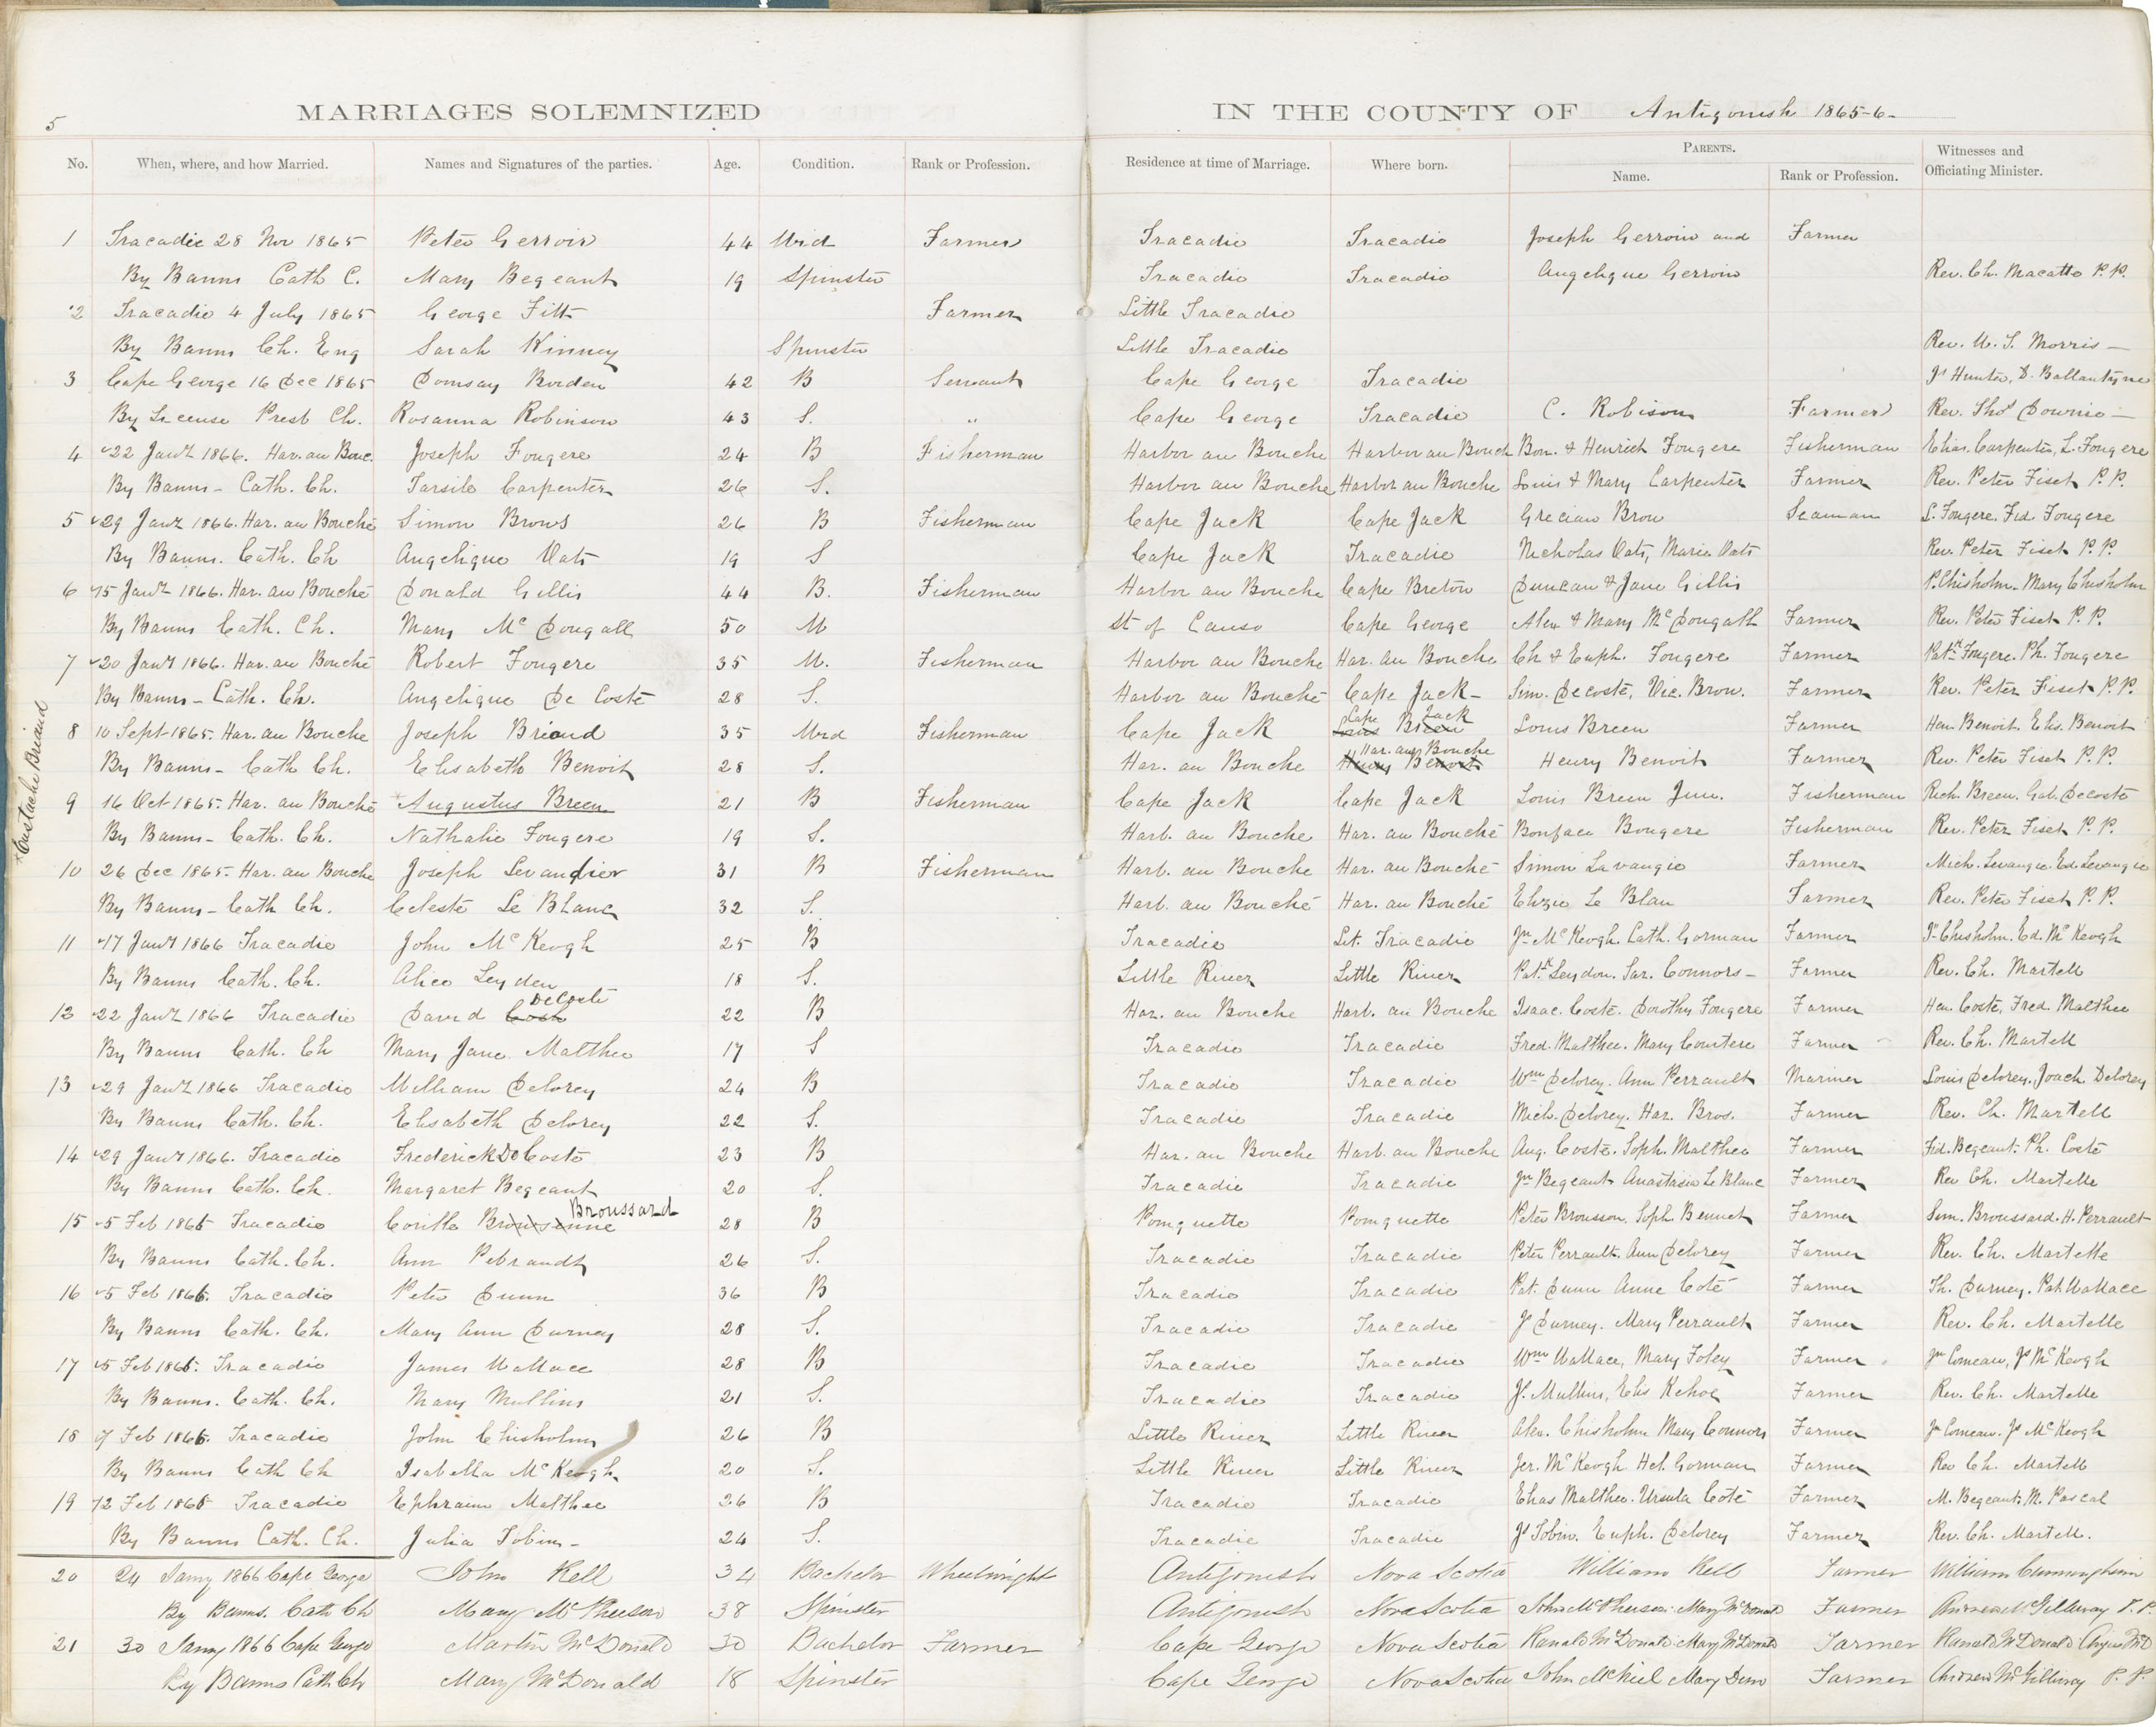 5
MARRIAGES SOLEMNIZED IN THE COUNTY OF Antigonish 1865-6-
No. When, where, and how Married. Names and Signatures of the parties. Age. Condition. Rank or Profession. Residence at time of Marriage. Where born. PARENTS. Name. Rank or Profession. Witnesses and Officiating Minister.
1 Tracadie 28 Nov 1865 Peter Gerroir 44 Wid Farmer Tracadie Tracadie Joseph Gerroir and Farmer
By Banns Cath C. Mary Begeant 19 Spinster Tracadie Tracadie Angelique Gerroir Rev. Ch. Macatte P. P.
2 Tracadie 4 July 1865 George Fitt Farmer Little Tracadie
By Banns Ch. Eng Sarah Kinney Spinster Little Tracadie Rev. W. S. Morris -
3 Cape George 16 Dec 1865 Domsay Borden 42 B Servant Cape George Tracadie Js Hunter, D. Ballantyne
By License Presb Ch. Rosanna Robinson 43 S. " Cape George Tracadie C. Robison Farmer Rev. Thos Downie -
4 22 Jany 1866. Har. au Bouc. Joseph Fougere 24 B Fisherman Harbor au Bouche Harbor au Bouch Bon. & Henrich Fougere Fisherman Elias Carpenter, L. Fougere
By Banns - Cath. Ch. Tarsile Carpenter 26 S. Harbor au Bouche Harbor au Bouche Louis & Mary Carpenter Farmer Rev. Peter Fiset P. P.
5 29 Jany 1866. Har. au Bouché Simon Brows 26 B Fisherman Cape Jack Cape Jack Grecian Brow Seaman L. Fougere. Fid. Fougere
By Banns. Cath. Ch Angelique Oats 19 S Cape Jack Tracadie Nicholas Oats, Marie Oats Rev. Peter Fiset P. P.
6 15 Jany 1866. Har. au Bouché Donald Gillis 44 B. Fisherman Harbor au Bouche Cape Breton Duncan & Jane Gillis P. Chisholm. Mary Chisholm
By Banns Cath. Ch. Mary McDougall 50 W St of Canso Cape George Alex & Mary McDougall Farmer Rev. Peter Fiset P. P.
7 20 Jany 1866. Har. au Bouché Robert Fougere 35 W. Fisherman Harbor au Bouche Har. au Bouche Ch & Euph. Fougere Farmer Patk Fougere. Ph. Fougere
By Banns - Cath. Ch. Angelique De Coste 28 S. Harbor au Bouché Cape Jack - Sim. Decoste, Vic. Brow. Farmer Rev. Peter Fiset P. P.
8 10 Sept 1865. Har. au Bouche Joseph Briand 35 Wid Fisherman Cape Jack Louis Breen Cape Jack Louis Breen Farmer Hen. Benoit. Elis. Benoit
By Banns - Cath Ch. Elisabeth Benoit 28 S. Har. au Bouche Henry Benoit Har. au Bouche Henry Benoit Farmer Rev. Peter Fiset P. P.
*Eustache Briand
9 16 Oct 1865. Har. au Bouché *Augustus Breen 21 B Fisherman Cape Jack Cape Jack Louis Breen Jun. Fisherman Rich. Breen. Gab. Decoste
By Banns - Cath. Ch. Nathalie Fougere 19 S. Harb. au Bouche Har. au Bouché Bonface Bougere Fisherman Rev. Peter Fiset P. P.
10 26 Dec 1865. Har. au Bouche Joseph Levandier 31 B Fisherman Harb. au Bouche Har. au Bouché Simon Lavangie Farmer Mich. Levangie. Ed. Levangie
By Banns - Cath Ch. Celeste Le Blanc 32 S. Harb. au Bouché Har. au Bouché Elizie Le Blan Farmer Rev. Peter Fiset P. P.
11 17 Jany 1866 Tracadie John McKeogh 25 B Tracadie Lit. Tracadie Jn McKeogh. Cath. Gorman Farmer Js Chisholm. Ed. McKeogh
By Banns Cath. Ch. Alice Leyden 18 S. Little River Little River Patk Leydon. Sar. Connors - Farmer Rev. Ch. Martell
12 22 Jany 1866 Tracadie David Cosh DeCoste 22 B Har. au Bouche Harb. au Bouche Isaac Coste. Dorothy Fougere Farmer Hen. Coste, Fred. Malthee
By Banns Cath. Ch Mary Jane Malthee 17 S Tracadie Tracadie Fred. Malthee. Mary Courtere Farmer Rev. Ch. Martell
13 29 Jany 1866 Tracadie William Delorey 24 B Tracadie Tracadie Wm Delorey. Ann Perrault Mariner Louis Delorey. Joach. Delorey
By Banns Cath. Ch. Elisabeth Delorey 22 S. Tracadie Tracadie Mich. Delorey. Har. Bros. Farmer Rev. Ch. Martell
14 29 Jany 1866. Tracadie Frederick DeCoste 23 B Har. au Bouche Harb. au Bouche Aug. Coste. Soph. Malthee Farmer Fid. Begeant. Ph. Coste
By Banns Cath. Ch. Margaret Begeant 20 S. Tracadie Tracadie Jn Begeant Anastasia Le Blanc Farmer Rev Ch. Martelle
15 5 Feb 1866 Tracadie Corille Broussard 28 B Pomquette Pomquette Peter Brousson, Soph. Bennet Farmer Sim. Broussard. H. Perrault
By Banns Cath. Ch. Ann Pebrandt 26 S. Tracadie Tracadie Peter Perrault. Ann Delorey Farmer Rev. Ch. Martelle
16 5 Feb 1866. Tracadie Peter Dunn 36 B Tracadie Tracadie Pat. Dunn Anne Coté Farmer Th. Durney. Pat. Wallace
By Banns Cath. Ch. Mary Ann Durney 28 S. Tracadie Tracadie J Durney. Mary Perrault Farmer Rev. Ch. Martelle
17 5 Feb 1866. Tracadie James Wallace 28 B Tracadie Tracadie Wm Wallace, Mary Foley Farmer Jn Comeau, Js McKeogh
By Banns. Cath. Ch. Mary Mullins 21 S. Tracadie Tracadie Js. Mullins, Elis Kehoe Farmer Rev. Ch. Martelle
18 7 Feb 1866. Tracadie John Chisholm 26 B Little River Little River Alex. Chisholm Mary Connors Farmer Jn Comeau. Js McKeogh
By Banns Cath Ch Isabella McKeogh 20 S. Little River Little River Jer. McKeogh Hel. Gorman Farmer Rev Ch. Martell
19 12 Feb 1866 Tracadie Ephraim Malthee 26 B Tracadie Tracadie Elias Malthee. Ursula Coté Farmer M. Begeant. M. Pascal
By Banns Cath. Ch. Julia Tobin - 24 S. Tracadie Tracadie Js Tobin. Euph. Delorey Farmer Rev. Ch. Martell.
20 24 Jany 1866 Cape George John Kell 34 Bachelor Wheelwright Antigonish Nova Scotia William Kell Farmer William Cunningham
By Banns. Cath Ch Mary McPherson 38 Spinster Antigonish Nova Scotia John McPherson Mary McDonald Farmer Andrew McGillivray P. P.
21 30 Jany 1866 Cape George Martin McDonald 30 Bachelor Farmer Cape George Nova Scotia Ranald McDonald Mary McDonald Farmer Ranald McDonald Angus McD
By Banns Cath Ch Mary McDonald 18 Spinster Cape George Nova Scotia John McNiel Mary Farmer Andrew McGillivray P. P.